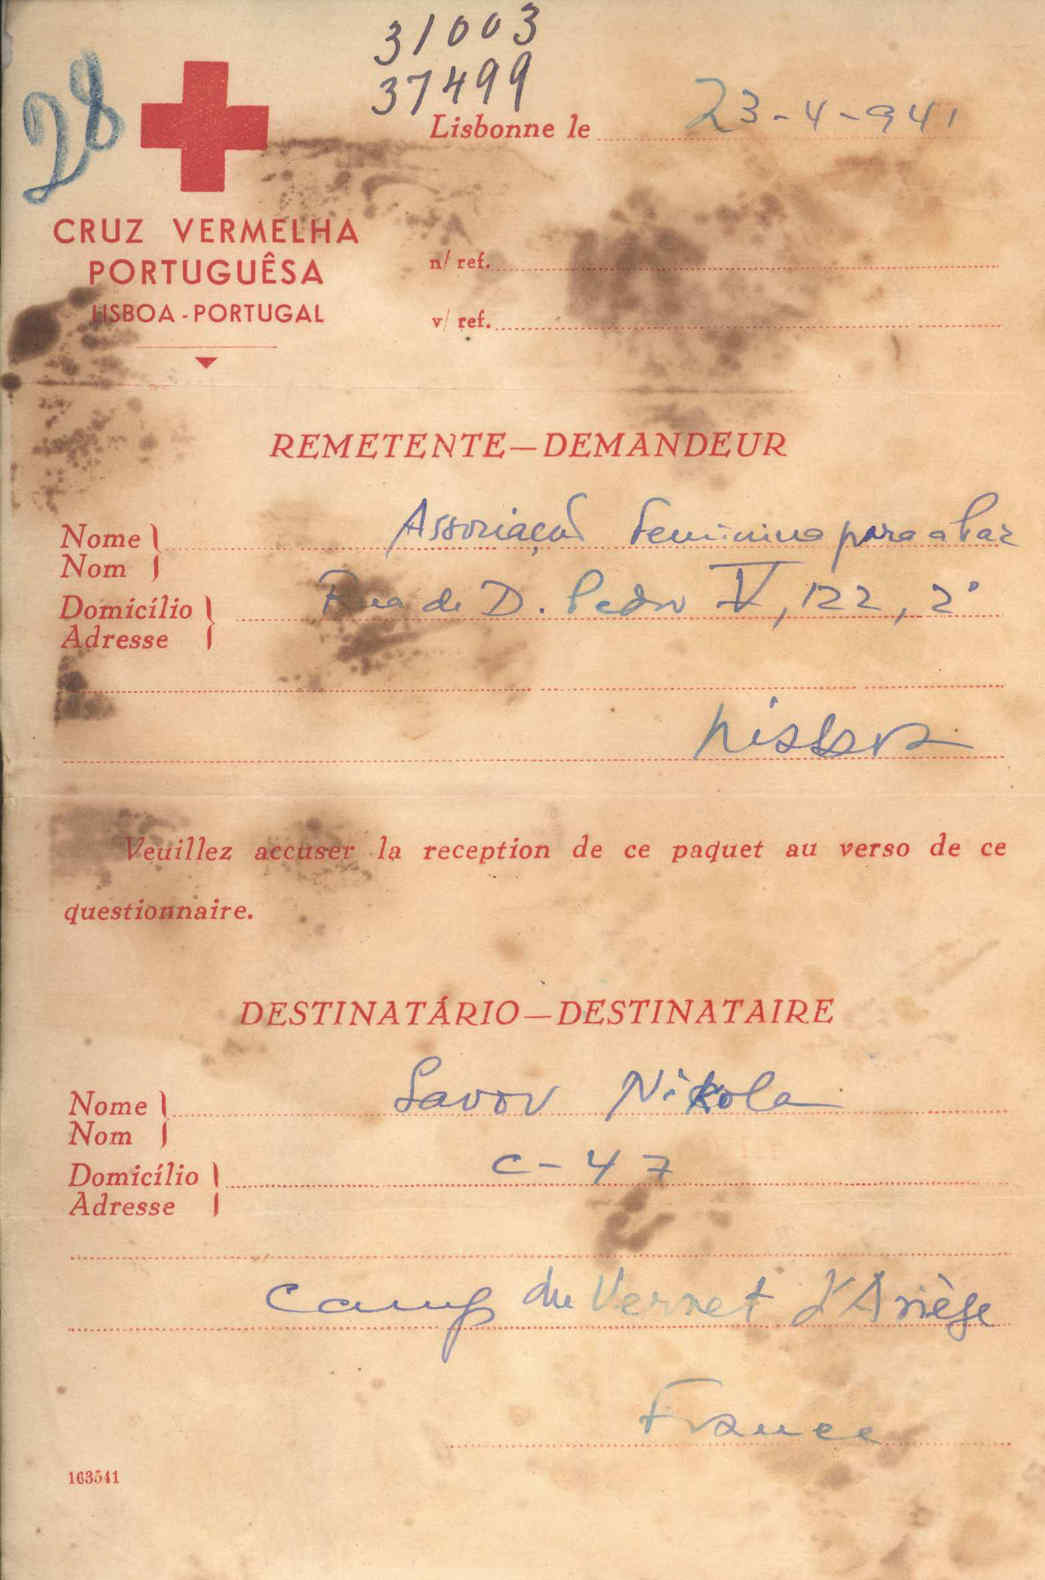 31003
37499
28
Lisbonne le 23-4-941
CRUZ VERMELHA
PORTUGUÊSA
LISBOA - PORTUGAL
n/ ref.
v/ ref.
REMETENTE—DEMANDEUR
Nome Associação Feminina para a Paz
Nom
Domicílio Rua de D. Pedro V, 122, 2º
Adresse
Lisboa
Veuillez accuser la reception de ce paquet au verso de ce
questionnaire.
DESTINATÁRIO—DESTINATAIRE
Nome Savov Nikola
Nom
Domicílio C-47
Adresse
Camp du Vernet d'Ariège
France
163541